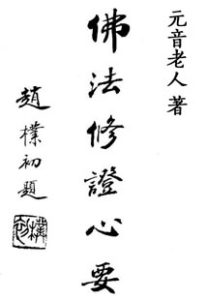 元音老人著
佛法修證心要
趙樸初題